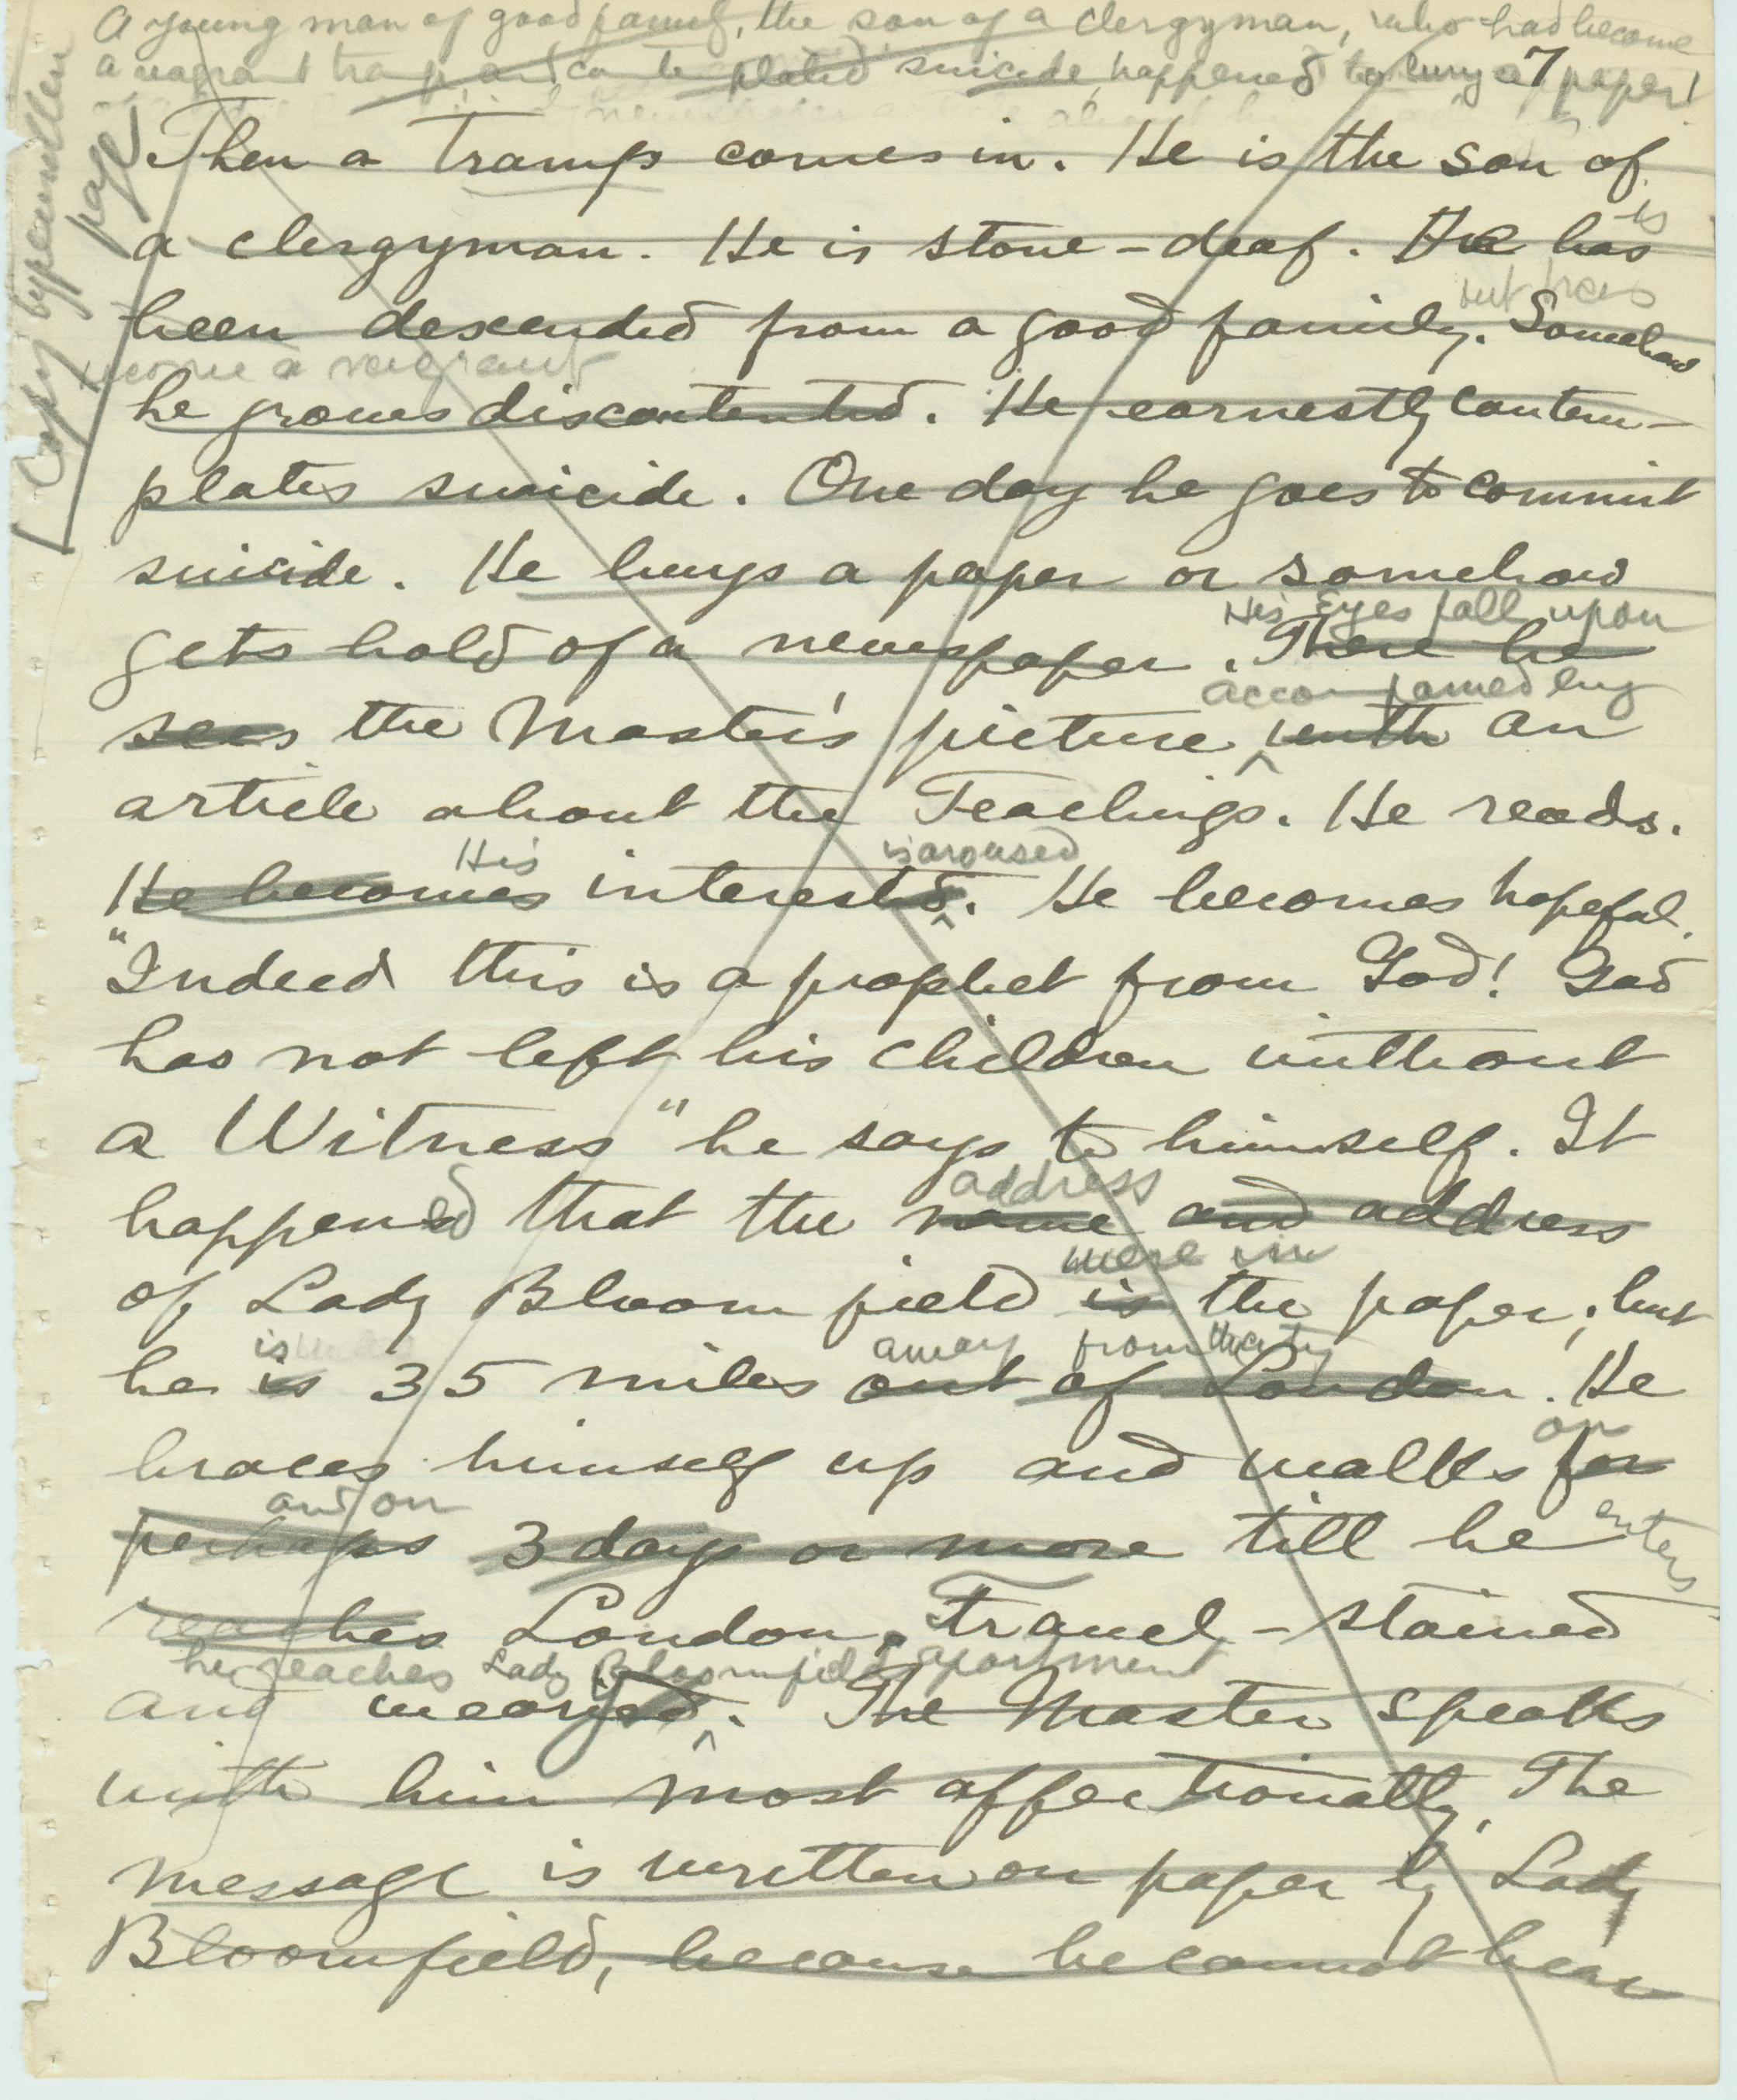 A young man of good family, the son of a clergyman, who had become
a vagrant tramp, and contemplated suicide, happened to buy a paper!
7
Copy typewritten
page
Then a tramp comes in. He is the son of
a clergyman. He is stone-deaf. He has
is
been descended from a good family. Somehow
but has
become a vagrant
he grows discontented. He earnestly contem-
plates suicide. One day he goes to commit
suicide. He buys a paper or somehow
gets hold of a newspaper. There he
His Eyes fall upon
sees the Master's picture, with an
accompanied by
article about the Teachings. He reads.
He becomes interested. He becomes hopeful.
His is aroused
"Indeed this is a prophet from God! God
has not left his children without
a Witness" he says to himself. It
happened that the name and address
address
of Lady Bloomfield is the paper; but
were in
he is 35 miles out of London. He
is away from the city
braces himself up and walks for
on
perhaps 3 days or more till he
and on enters
reaches London, Travel-stained
and wearied. The Master speaks
he reaches Lady Bloomfield's apartment
with him most affectionatly. The
message is written on paper by Lady
Bloomfield, because he cannot hear